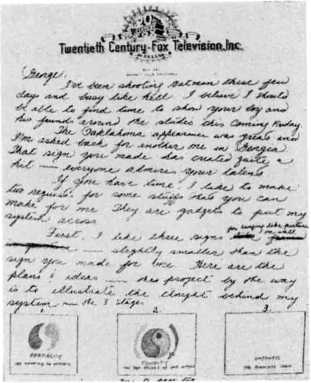 Twentieth Century-Fox Television, Inc.
George,
I've been shooting Batman these few
days and busy like hell. I believe I should
be able to find time to show your boy and
his friends around the studio this coming Friday.
The Oaklahoma appearance was great and
I'm asked back for another one in Georgea
That sign you made has created quite a
hit — everyone admires your talents
If you have time I like to make
two requests for some stuffs that you can
make for me They are gadgets to put my
system across
for hanging like picture
on wall
First, I like three signs
slightly smaller than the
sign you made for me. Here are the
plans & ideas — this project by the way
is to illustrate the thought behind my
system — the 3 stages
1. 2. 3.
PARTIALITY
FLUIDITY
EMPTINESS
THE FORMLESS FORM